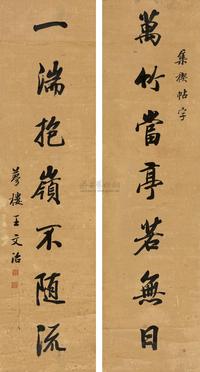 集禊帖字
萬竹當亭若無日
一湍抱嶺不随流
夢樓王文治